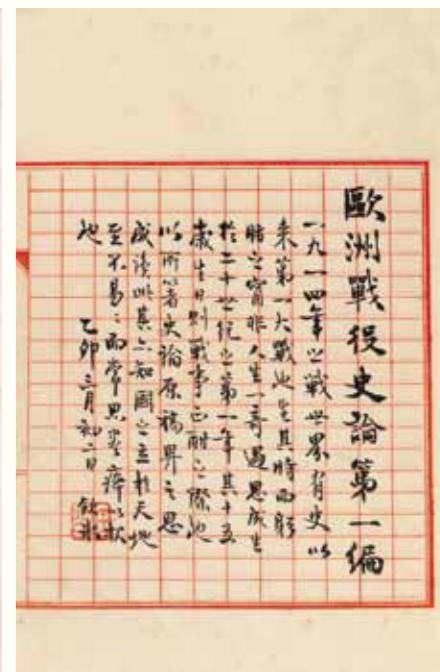 歐洲戰役史論第一編
一九一四年之戰世界有史以
來第一大戰也生其時而躬
睹之寧非人生一奇遇思成生
於二十世紀之第一年其十五
歲生日則戰事正酣之際也
以所著史論原稿畀之思
成讀此其亦知國之立於天地
至不易易而常思盡瘁以報
也
乙卯三月初二日 飲冰